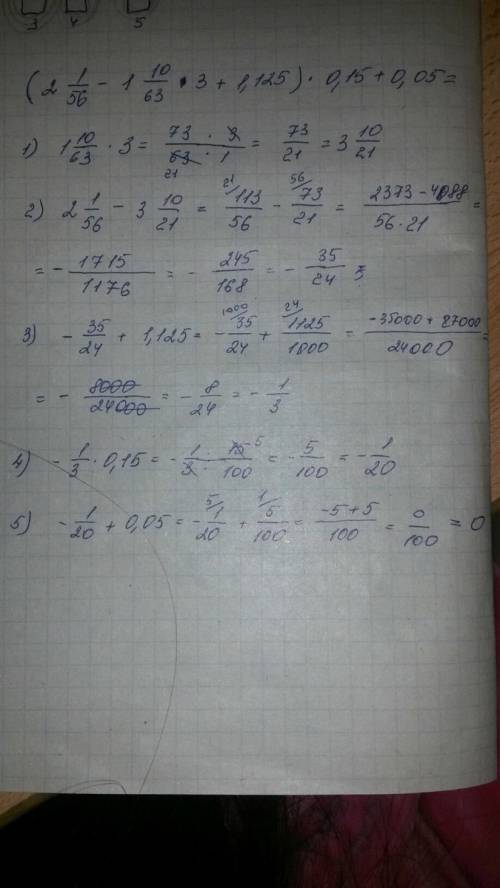 3 4 5
(2 1/56 - 1 10/63 · 3 + 1,125) · 0,15 + 0,05 =
1) 1 10/63 · 3 = 73 · 3 / 63 · 1 = 73/21 = 3 10/21
21
2) 2 1/56 - 3 10/21 = 21/ 113/56 - 56/ 73/21 = 2373 - 4088 / 56 · 21 =
= - 1715/1176 = - 245/168 = - 35/24
3) - 35/24 + 1,125 = 1000/ - 35/24 + 24/ 1125/1000 = -35000 + 27000 / 24000 =
= - 8000/24000 = - 8/24 = - 1/3
4) - 1/3 · 0,15 = - 1/3 · 15/100 5 = - 5/100 = - 1/20
5) - 1/20 + 0,05 = 5/ - 1/20 + 1/ 5/100 = -5 + 5 / 100 = 0/100 = 0